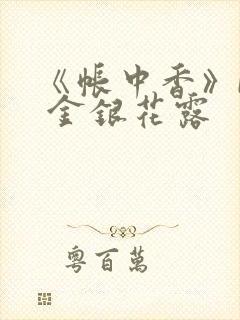 《帐中香》
金银花露
粤百万